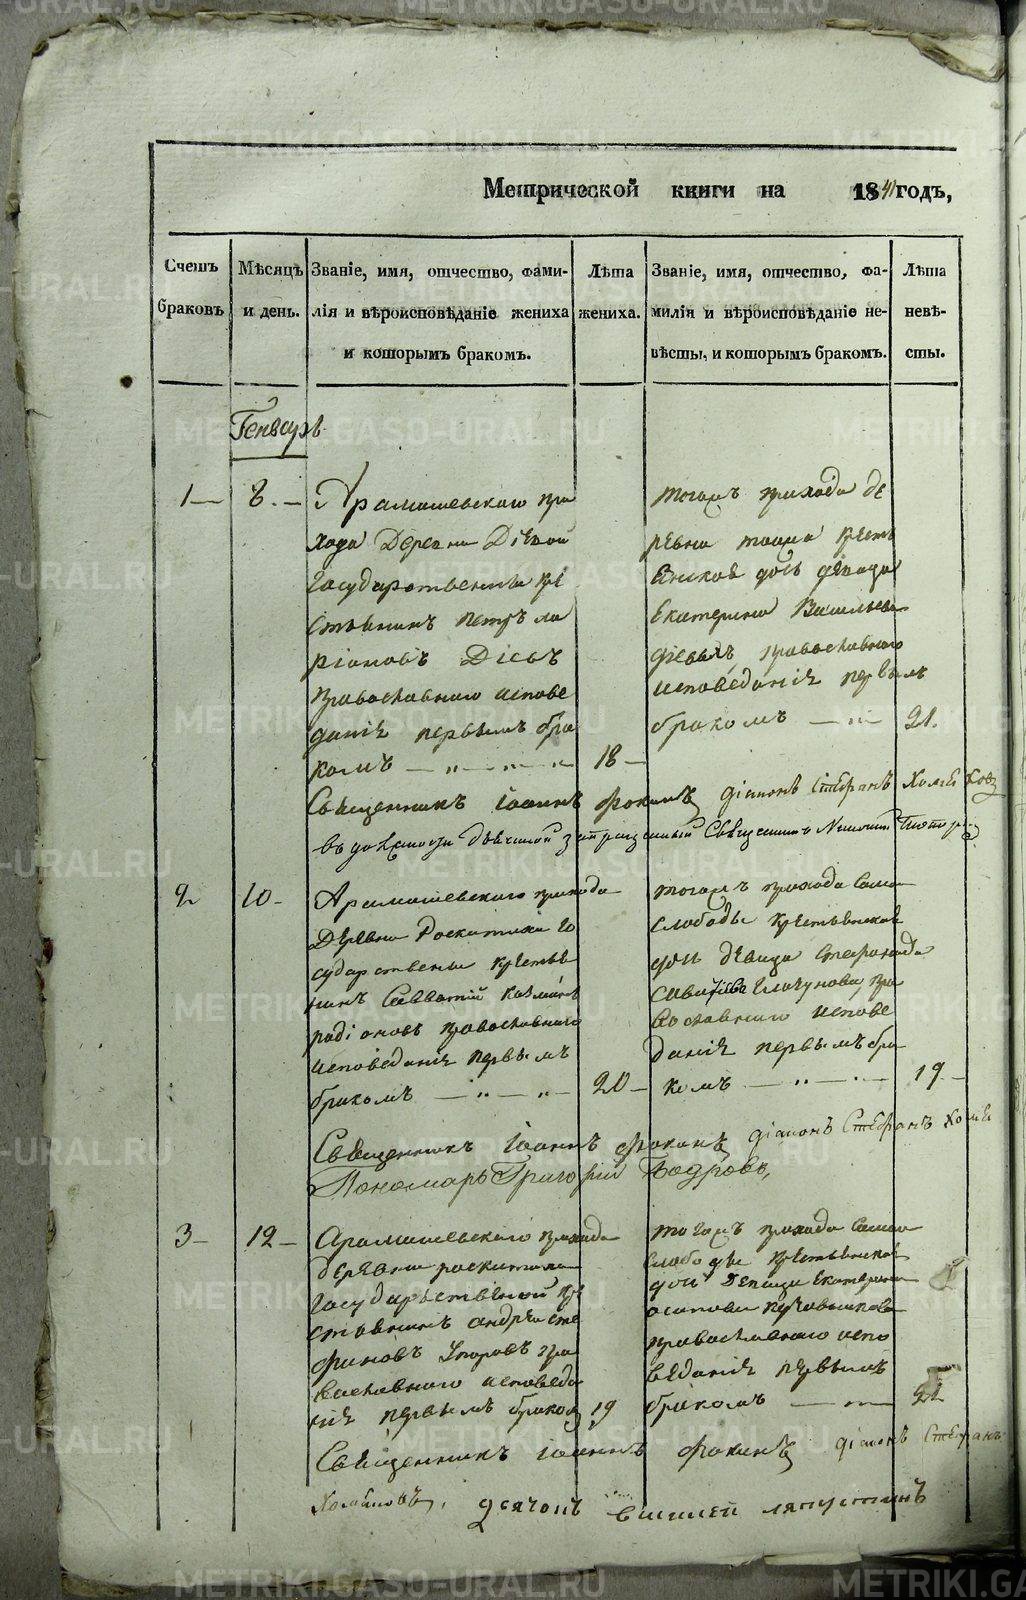 Метрической книги на 1841 годъ,
Счетъ браковъ
Мѣсяцъ и день.
Званіе, имя, отчество, фами-
лія и вѣроисповѣданіе жениха
и которымъ бракомъ.
Лѣта
жениха.
Званіе, имя, отчество, фа-
милія и вѣроисповѣданіе не-
вѣсты, и которымъ бракомъ.
Лѣта
невѣ-
сты.
Генварь
1 — 8. —
Арамашевскаго при
хода Деревни Дѣевой
Государственны кре
стьянинъ Петръ ла
ріоновъ Дѣевъ
православнаго испове
данія первымъ бра
комъ — „ — „ — „ — 18 —
тогожъ прихода де
ревни тоежъ крестъ
янской дочь девица
Екатерина Васильева
Дѣевыхъ, православнаго
исповеданія первымъ
бракомъ — „ — 21.
Священникъ Іоаннъ Фокинъ діаконъ Стефанъ Холмовъ
въ должности дьячкой Священникъ
2 10 —
Арамашевскаго прихода
Деревни Роскатихи го
сударственны крестья
нинъ Савватій
раді оновъ православнаго
исповеданія первымъ
бракомъ — „ — „ — 20 —
тогожъ прихода самой
слободы крестьянская
дочь девица
православнаго испове
данія первымъ бра
комъ — „ — „ — 19 —
Священникъ Іоаннъ Фокинъ діаконъ Стефанъ
Пономарь Григорій Бодровъ,
3 — 12 —
Арамашевскаго прихода
деревни роскатихи
государственной кре
стьянинъ андрей сте
фановъ Упоровъ пра
вославнаго исповеда
нія первымъ бракомъ 19
тогожъ прихода самой
слободы крестьянская
дочь девица Екатерина
осипова
православнаго испо
веданія первымъ
бракомъ — „ — 21
Священникъ іоаннъ Фокинъ діаконъ Стефанъ
Холмовъ, дьячокъ ляпустинъ
METRIKI.GASO-URAL.RU